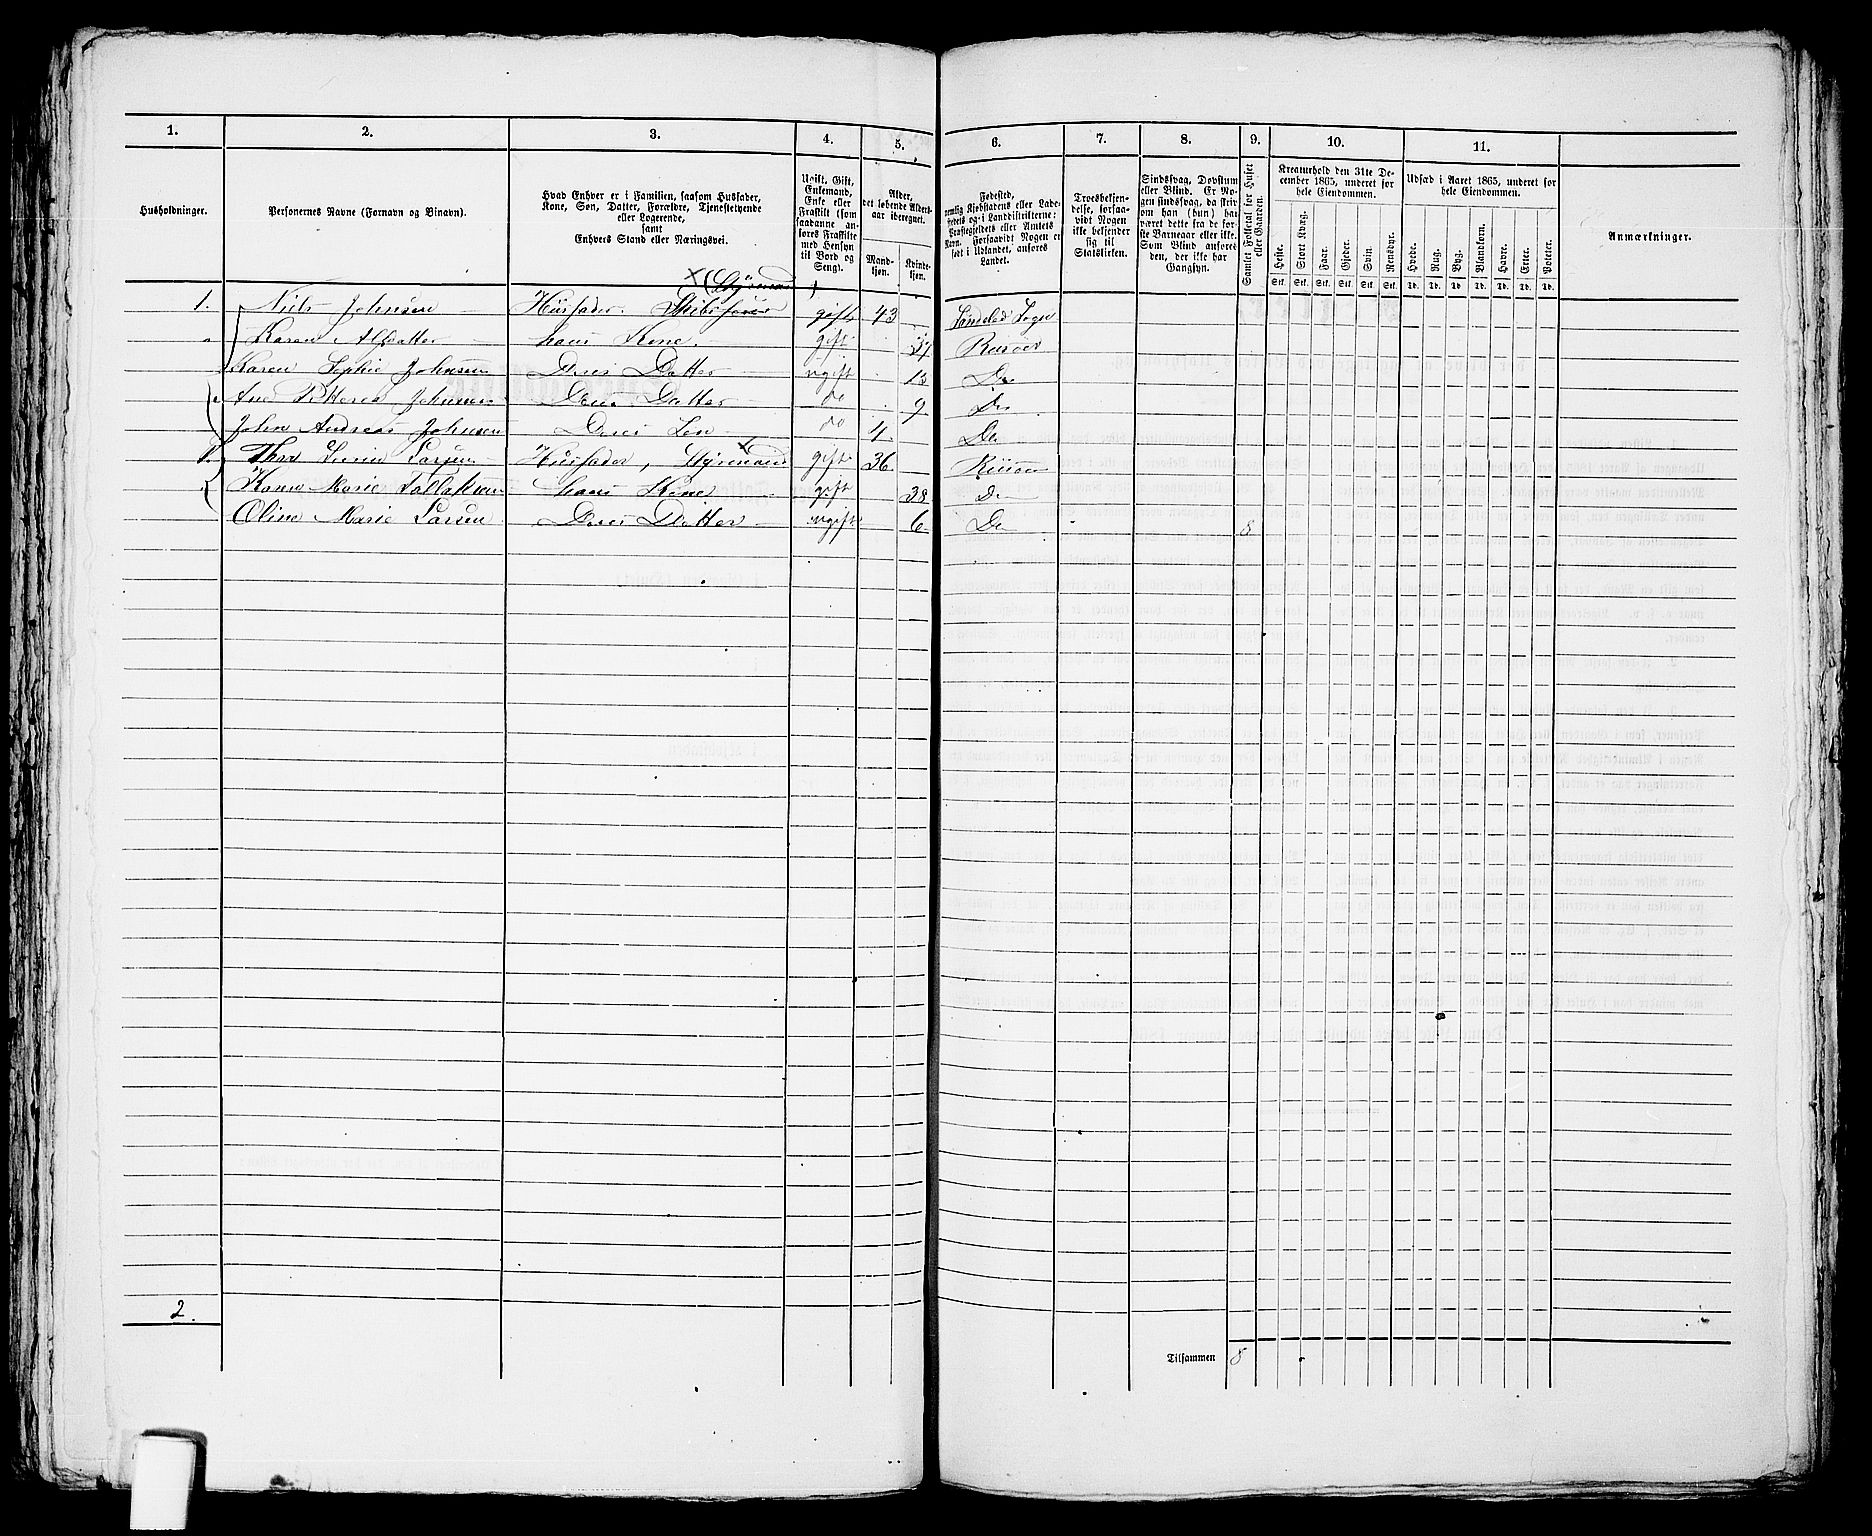 1. 2. 3. 4. 5. 6. 7. 8. 9. 10. 11.
Husholdninger.
Personernes Navne (Fornavn og Binavn).
Hvad Enhver er i Familien, saasom Husfader,
Kone, Søn, Datter, Forældre, Tjenestetyende
eller Logerende,
samt
Enhvers Stand eller Næringsvei.
Ugift, Gift,
Enkemand,
Enke eller
Fraskilt (som
saadanne an-
føres Fraskilte
med Hensyn
til Bord og
Seng).
Alder,
det løbende Alders-
aar iberegnet.
Mand-
kjøn.
Kvinde-
kjøn.
Fødested,
nemlig Kjøbstadens eller Lade-
stedets og i Landdistrikterne:
Præstegjeldets eller Amtets
Navn. Forsaavidt Nogen er
født i Udlandet, anføres
Landet.
Troesbekjen-
delse, forsaa-
vidt Nogen
ikke bekjender
sig til
Statskirken.
Sindssvag, Døvstum
eller Blind. Er No-
gen sindssvag, da skriv
om han (hun) har
været dette fra de for-
ste Barneaar eller ikke.
Som Blind anføres
den, der ikke har
Gangsyn.
Samlet Folketal for Huset
eller Gaarden.
Kreaturhold den 31te De-
cember 1865, underet for
hele Eiendommen.
Heste. Stort Kvæg. Faar. Gjeder. Svin. Rensdyr.
Stk. Stk. Stk. Stk. Stk. Stk.
Udsæd i Aaret 1865, underet for
hele Eiendommen.
Hvede. Rug. Byg. Blandkorn. Havre. Erter. Poteter.
Td. Td. Td. Td. Td. Td. Td.
Anmærkninger.
(Styrmand)
1. Niels Johnsen Husfader. Skibsfører gift 43 Søndeled Sogn
Karen Alfsdatter hans Kone. gift 37 Risøer
Karen Sophie Johnsen Deres Datter ugift 13 Do
Ane Johnsen Deres Datter do 9 Do
John Andreas Johnsen Deres Søn do 4 Do
1. Larsen Husfader, Styrmand gift 36 Risøer
Karen Marie Tallaksen hans Kone gift 38 Do
Oline Marie Larsen Deres Datter ugift 6 Do 8
2.
Tilsammen 8